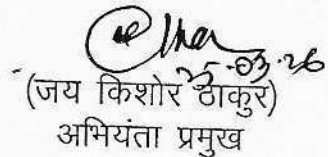 25-03-26
(जय किशोर ठाकुर)
अभियंता प्रमुख